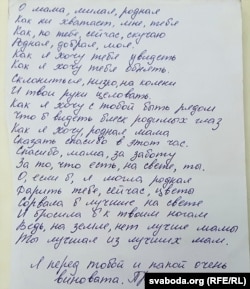 О мама, милая, родная
Как ни хватает, мне, тебя
Как, по тебе, сейчас, скучаю
Родная, добрая, моя.
Как я хочу тебя увидеть
Как я хочу тебя обнять.
Склониться, низко, на колени
И твои руки целовать.
Как я хочу с тобой быть рядом
Что б видеть блеск родимых глаз
Как я хочу, родная мама
Сказать спасибо в этот час.
Спасибо, мама, за заботу
За то, что есть, на свете, ты.
О, если б, я могла родная
Дарить тебе, сейчас, цветы
Сорвала б лучшие, на свете
И бросила б к твоим ногам
Ведь, на земле, нет лучше мамы
Ты лучшая из лучших мам.
Я перед тобой и папой очень
виновата.
svaboda.org (RFE/RL)